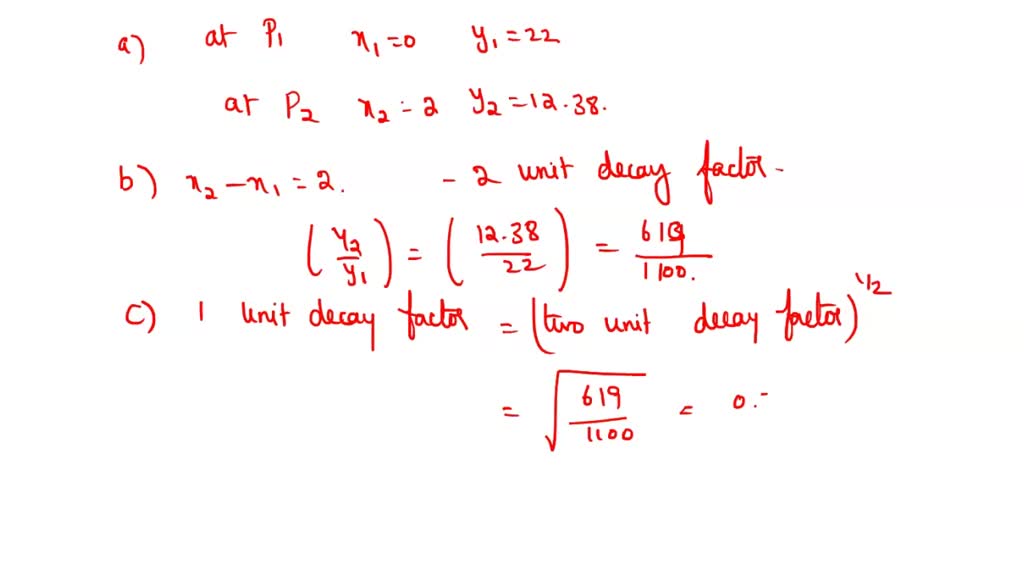 a) at P₁ x₁ = 0 y₁ = 22
at P₂ x₂ = 2 y₂ = 12.38.
b) x₂ - x₁ = 2. - 2 unit decay factor.
(y₂/y₁) = (12.38/22) = 619/1100.
c) 1 unit decay factor = (two unit decay factor)^1/2
= √(619/1100) = 0.